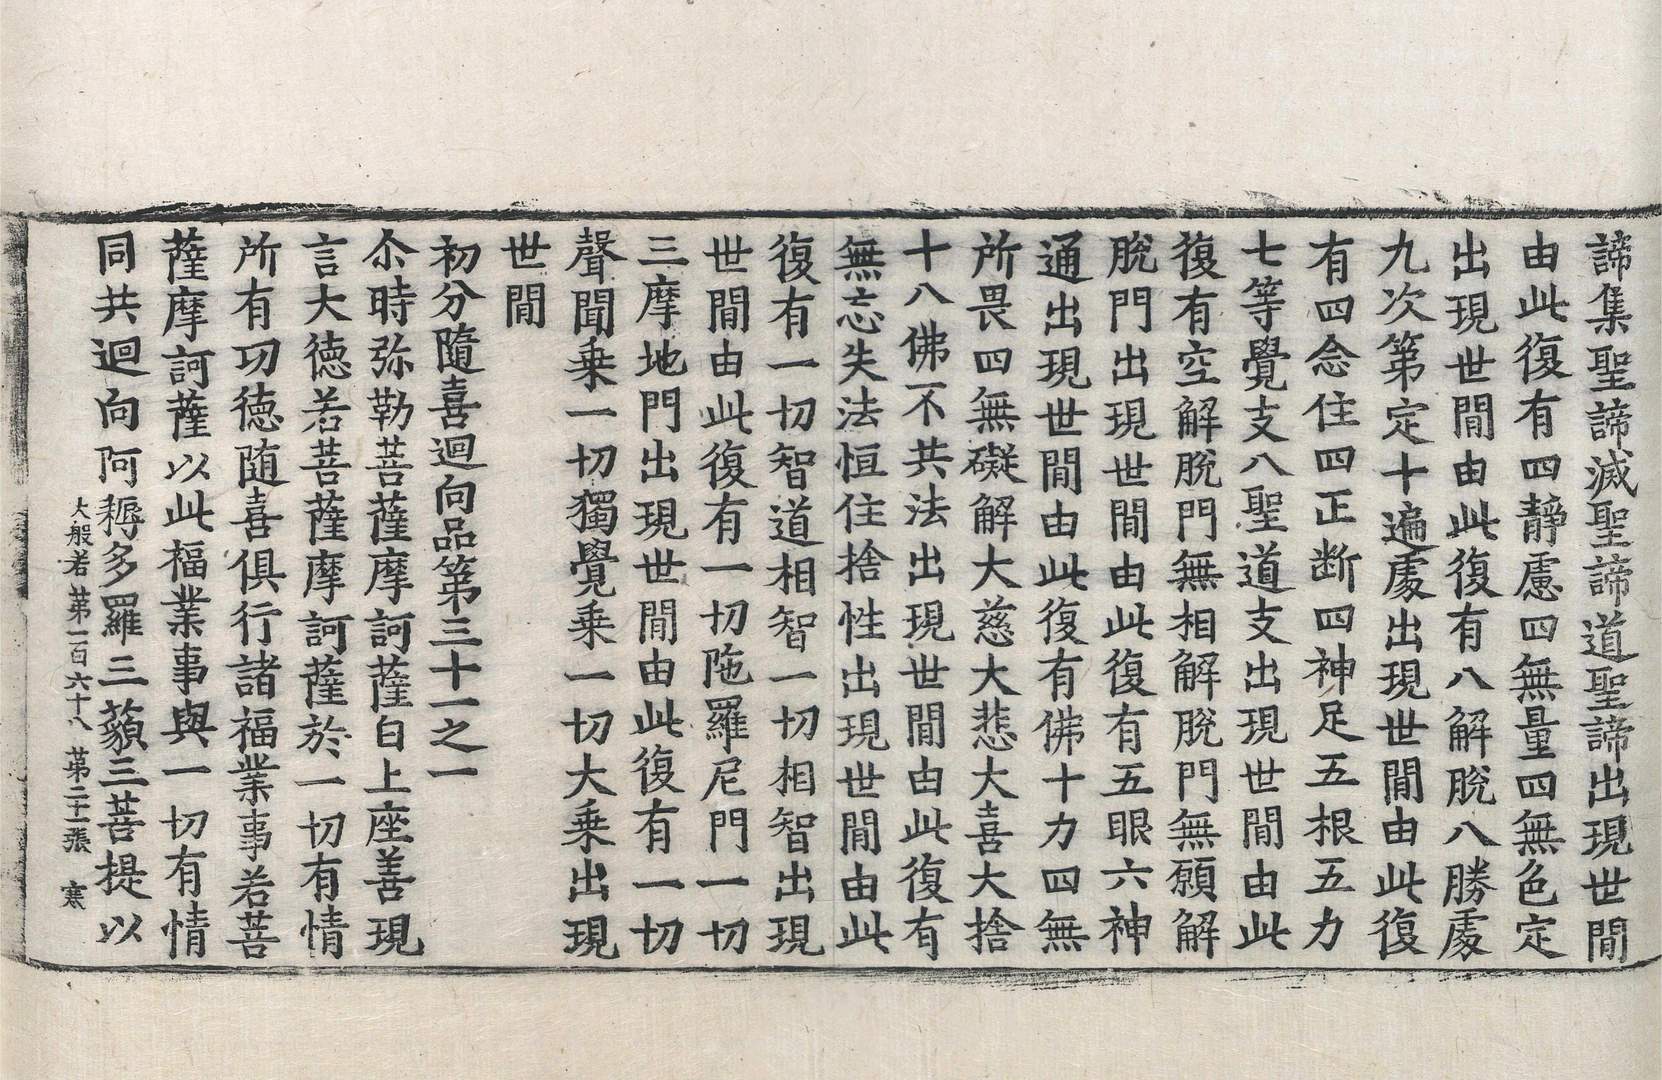 諦集聖諦滅聖諦道聖諦出現世閒
由此復有四靜慮四無量四無色定
出現世閒由此復有八解脫八勝處
九次第定十遍處出現世閒由此復
有四念住四正断四神足五根五力
七等覺支八聖道支出現世閒由此
復有空解脫門無相解脫門無願解
脫門出現世閒由此復有五眼六神
通出現世閒由此復有佛十力四無
所畏四無礙解大慈大悲大喜大捨
十八佛不共法出現世閒由此復有
無忘失法恒住捨性出現世閒由此
復有一切智道相智一切相智出現
世閒由此復有一切陁羅尼門一切
三摩地門出現世閒由此復有一切
聲聞乗一切獨覺乗一切大乗出現
世閒
初分隨喜迴向品第三十一之一
尒時弥勒菩薩摩訶薩白上座善現
言大徳若菩薩摩訶薩於一切有情
所有功徳随喜俱行諸福業事若菩
薩摩訶薩以此福業事與一切有情
同共迴向阿耨多羅三藐三菩提以
大般若第一百六十八 第二十一張 寒